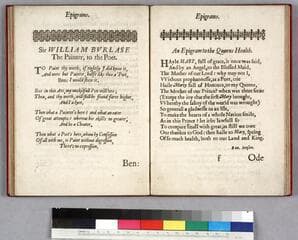 Epigrams.
Sir WILLIAM BVRLASE
The Painter, to the Poet.
TO Paint thy worth, if rightly I did know it
And were but Painter, halfe like thee a Poët,
Ben: I would shew it.
But in this Art, my unskilfull Pen will tire;
Thou, and thy worth, will still be found farre higher,
And I a lyer.
Then what a Painter's here? and what an eater
Of great attempts! whereas his skill's no greater,
And he a Cheater.
Then what a Poet's here, whom by Confession
Of all with me, to Paint without digression
There's no expression.
Ben:
Epigrams.
An Epigram to the Queens Health.
HAyle MARY, full of grace, it once was said,
And by an Angel, to the blessed Maid,
The Mother of our Lord: why may not I,
Without prophanenesse, as a Poet, crie
Haile Mary full of Honours, to my Queene,
The Mother of our Prince? when was there seene
(Except the joy that the first Mary brought,
Whereby the safety of the world was wrought)
So generall a gladnesse to an Isle,
To make the hearts of a whole Nation smile,
As in this Prince? let it be lawfull so
To compare small with great as still we owe
Our thankes to God: then haile to Mary, spring
Of so much health, both to our Land and King.
f
Ode